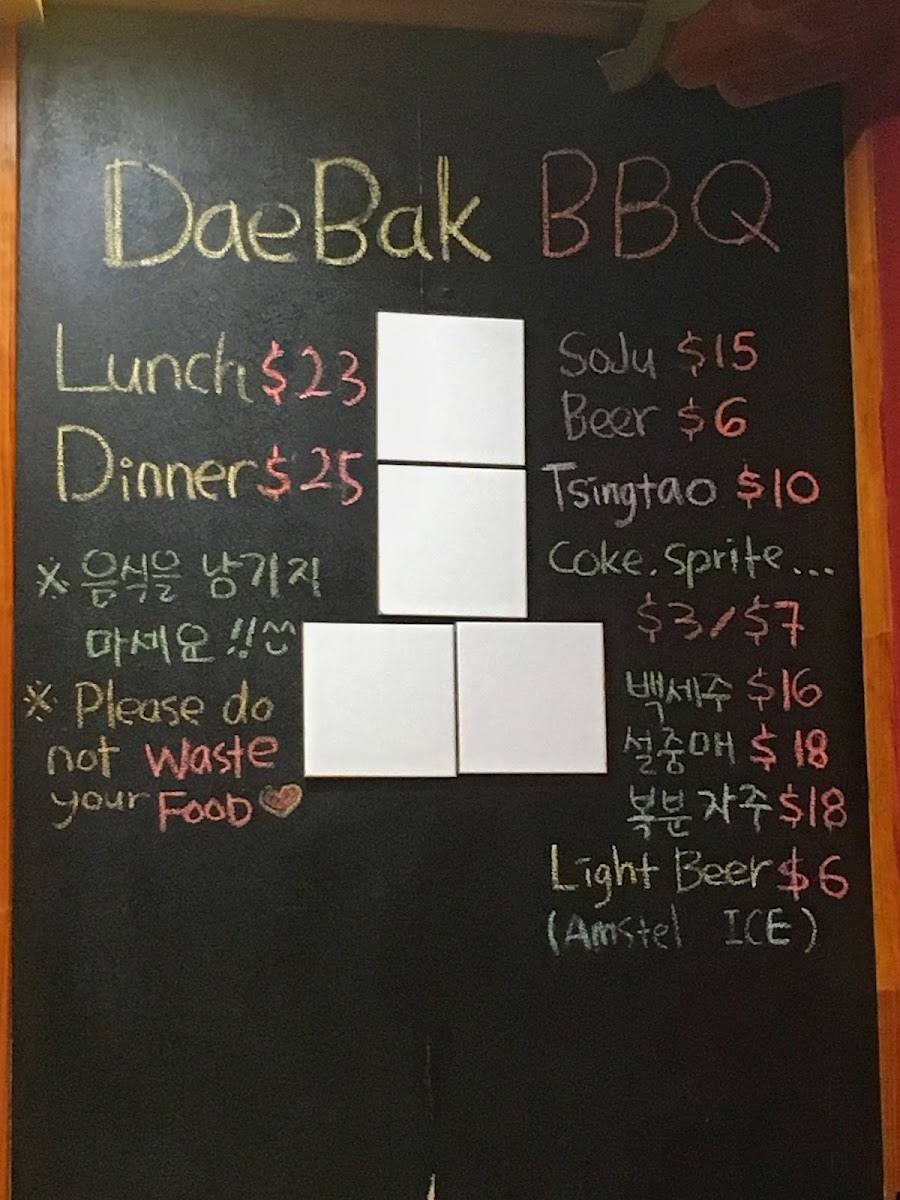 DaeBak BBQ
Lunch $23
Dinner $25
※ 음식을 남기지
마세요!!
※ Please do
not waste
your FOOD
SoJu $15
Beer $6
Tsingtao $10
Coke, Sprite...
$3/$7
백세주 $16
설중매 $18
복분자주 $18
Light Beer $6
(Amstel ICE)